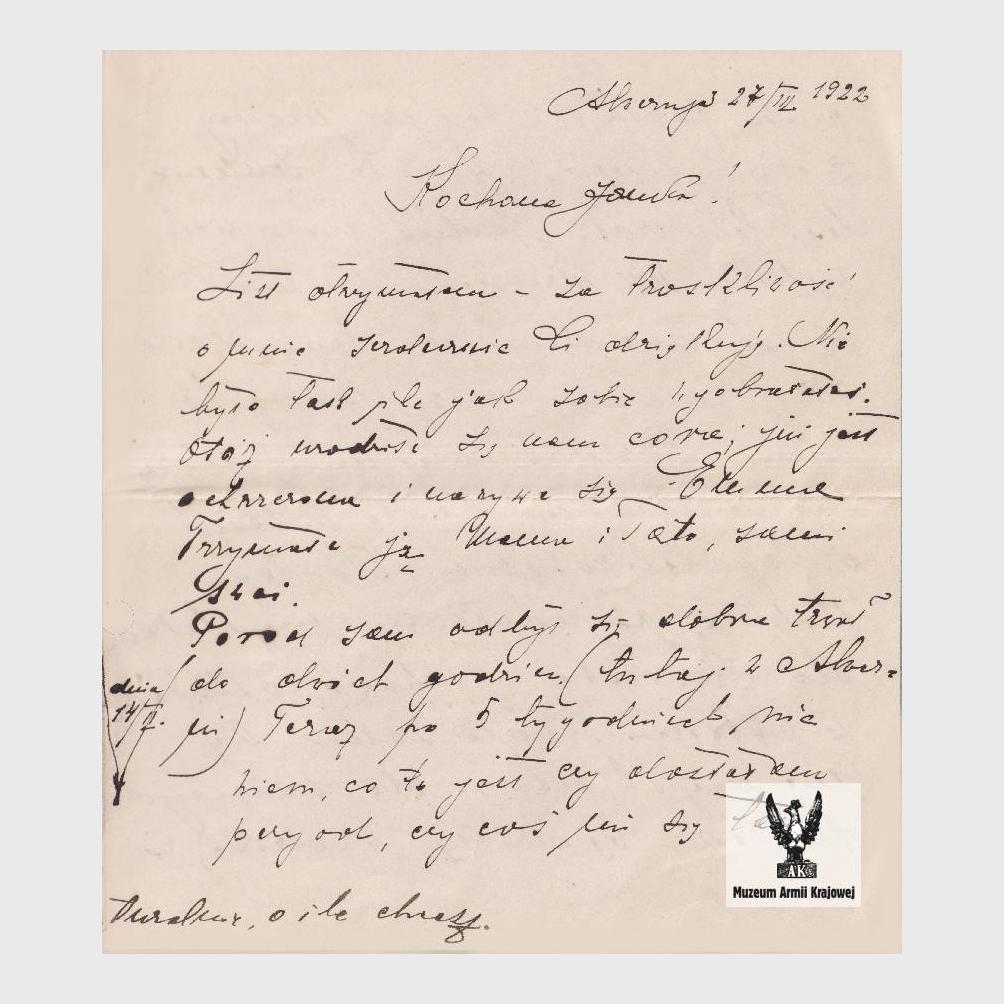 Alwernja 27/III 1922
Kochana Janko!
List otrzymałam - za troskliwość
o mnie serdecznie Ci dziękuję. Nie
było tak źle jak sobie wyobrażałaś.
Otóż urodziła się nam córa; już jest
ochrzczona i nazywa się
Trzymała ją Mama i Tato, sami
swoi.
Poród sam odbył się dobrze trwał
do dwóch godzin. (tutaj w Alwer-
dnia
14/II.
ni) Teraz po 5 tygodniach nie
wiem, co to jest czy dostałam
peryod, czy coś mi się
Naturalnie, o ile chcesz.
Muzeum Armii Krajowej
AK